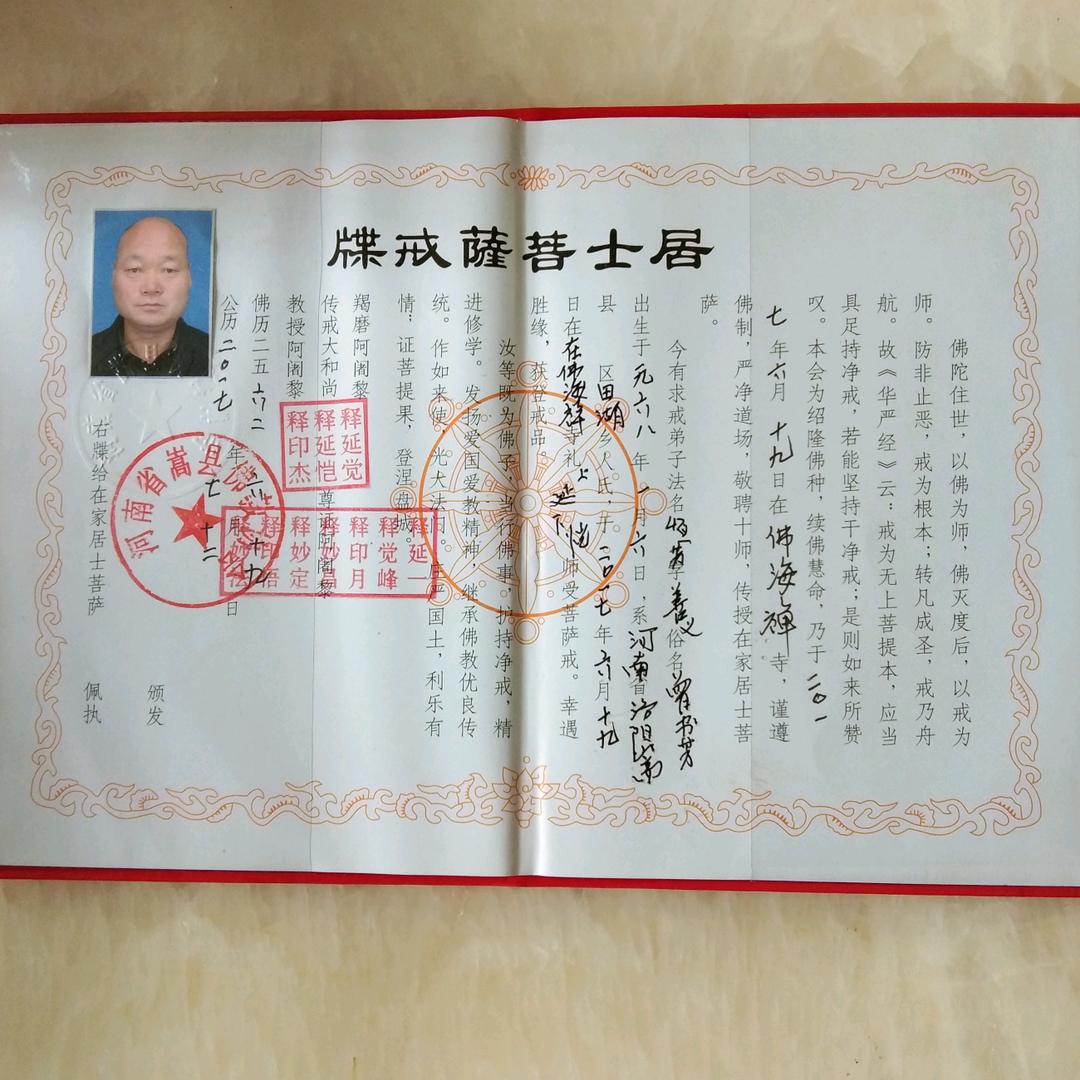 居士菩薩戒牒
佛陀住世，以佛为师，佛灭度后，以戒为
师。防非止恶，戒为根本；转凡成圣，戒乃舟
航。故《华严经》云：戒为无上菩提本，应当
具足持净戒，若能坚持于净戒；是则如来所赞
叹。本会为绍隆佛种，续佛慧命，乃于二〇一
七年六月十九日在佛海禅寺，谨遵
佛制，严净道场，敬聘十师，传授在家居士菩
萨。
今有求戒弟子法名 字善义俗名 书芳
出生于 元六八年一月六日，系河南省洛阳
县 区田湖乡人氏，于二〇一七年六月十九
日在在佛海禅寺礼上延下恺师受菩萨戒。幸遇
胜缘，获登戒品。
汝等既为佛子，当行佛事，护持净戒，精
进修学。发扬爱国爱教精神，继承佛教优良传
统。作如来使，光大法门。庄严国土，利乐有
情；证菩提果，登涅盘城。
羯磨阿阇黎 释延觉
传戒大和尚 释延恺
教授阿阇黎 释印杰
尊证阿阇黎
释延一
释觉峰
释印月
释妙昌
释妙定
释印悟
释妙
佛历二五六二年
公历二〇一七年 月 日
河南省嵩县
右牒给在家居士菩萨
颁发
佩执